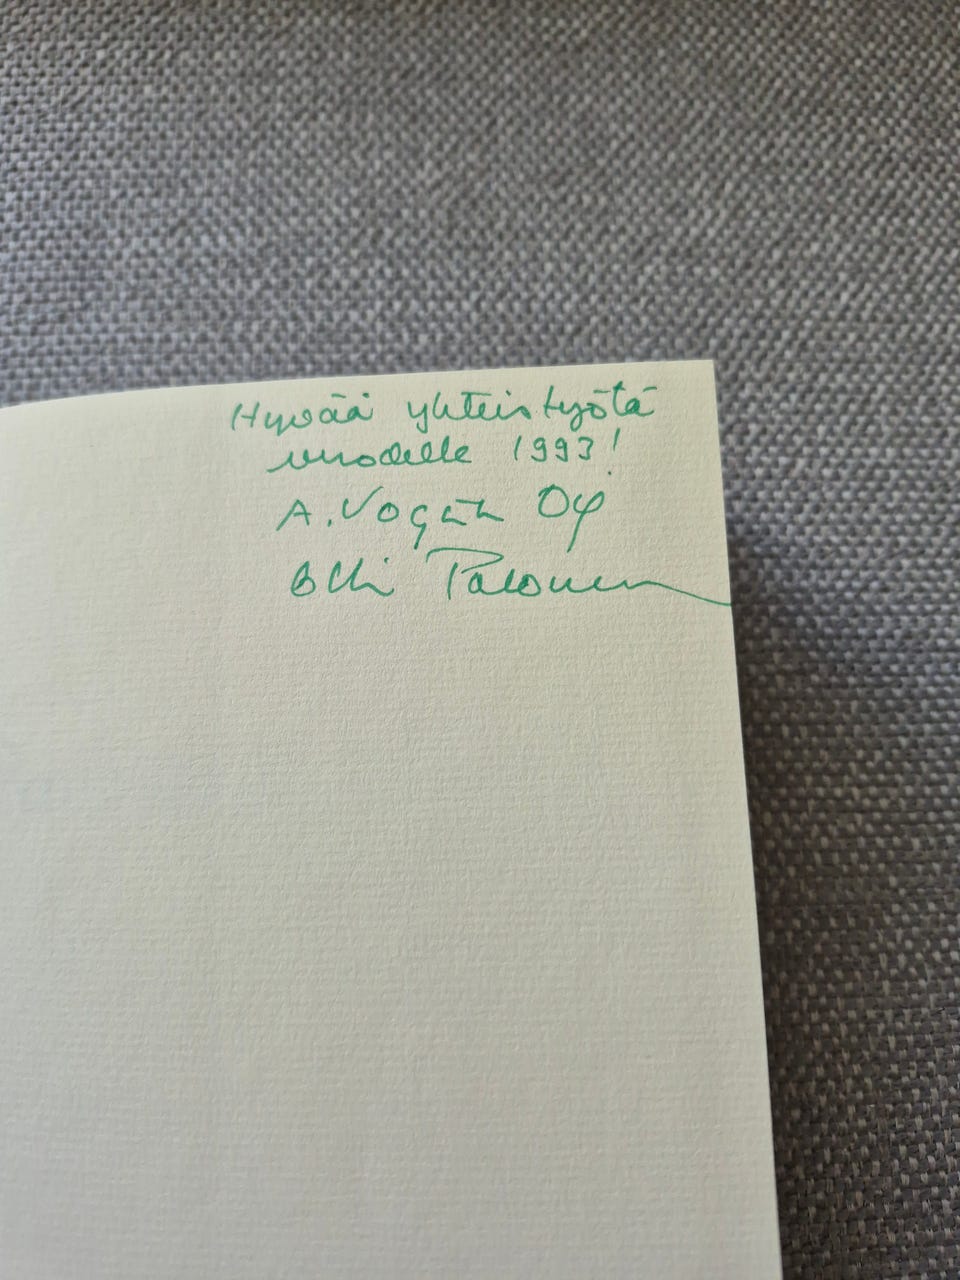 Hyvää yhteistyötä
vuodelle 1993!
A. Vogel Oy
Olli Palonen